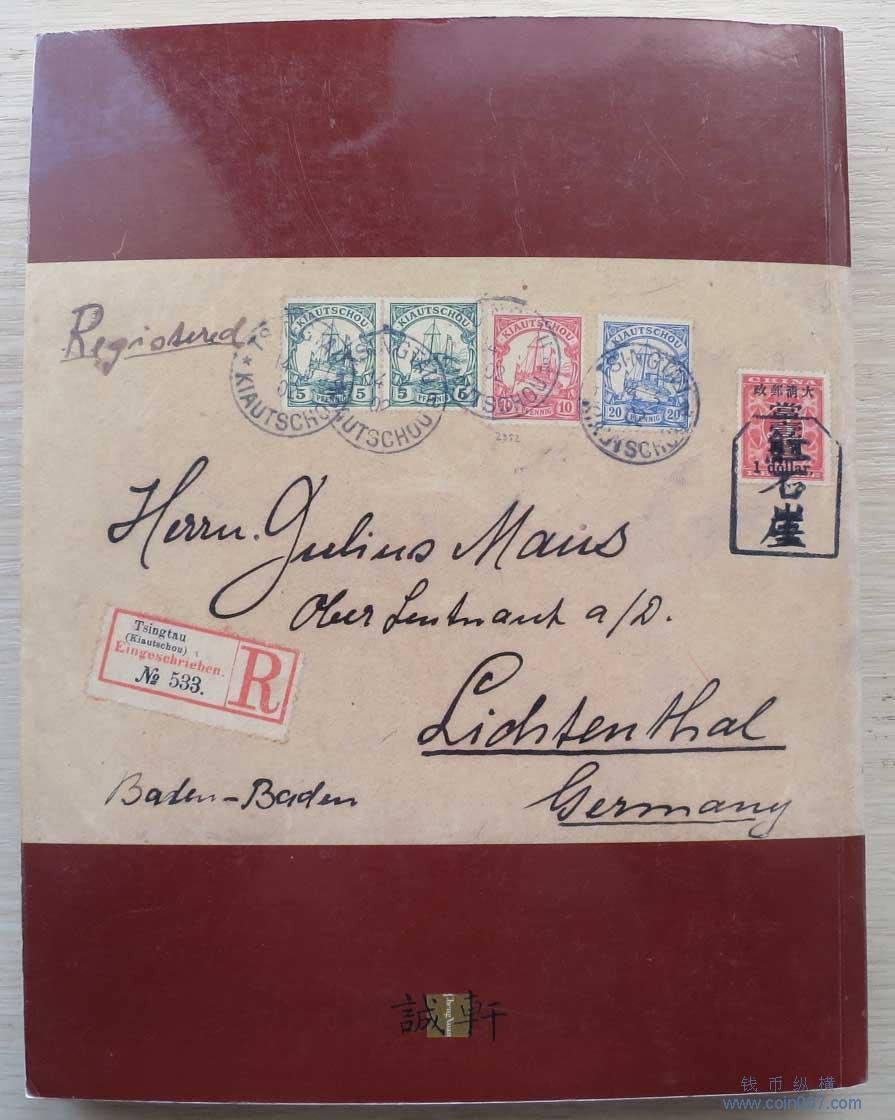 Registered
KIAUTSCHOU
5 PFENNIG 5
KIAUTSCHOU
5 PFENNIG 5
KIAUTSCHOU
10 PFENNIG 10
KIAUTSCHOU
20 PFENNIG 20
KIAUTSCHOU
政郵淸大
1 dollar.
Herrn. Julius Maus
Ober Leutnant a/D.
Tsingtau
(Kiautschou)
Eingeschrieben.
№ 533.
R
Lichtenthal
Baden-Baden
Germany
誠軒
Cheng Xuan
钱币纵横
www.coin007.com